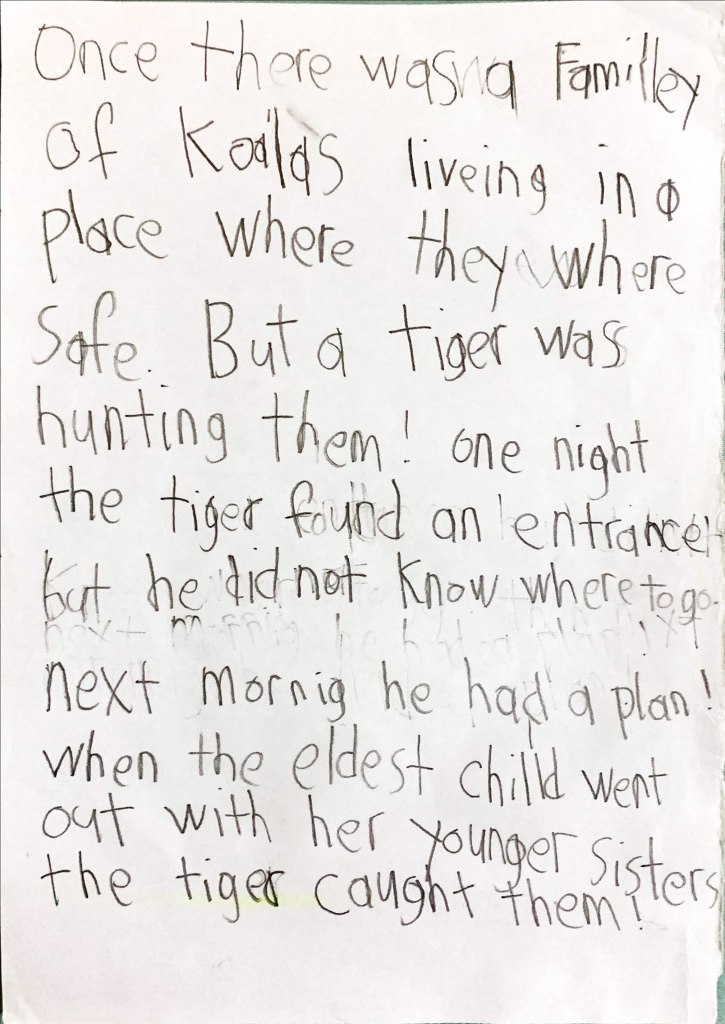 Once there was a Familley
of Koalas liveing in a
place where they where
safe. But a tiger was
hunting them! one night
the tiger found an entrance
but he did not know where to go.
next mornig he had a plan!
when the eldest chilld went
out with her younger sisters
the tiger caught them!